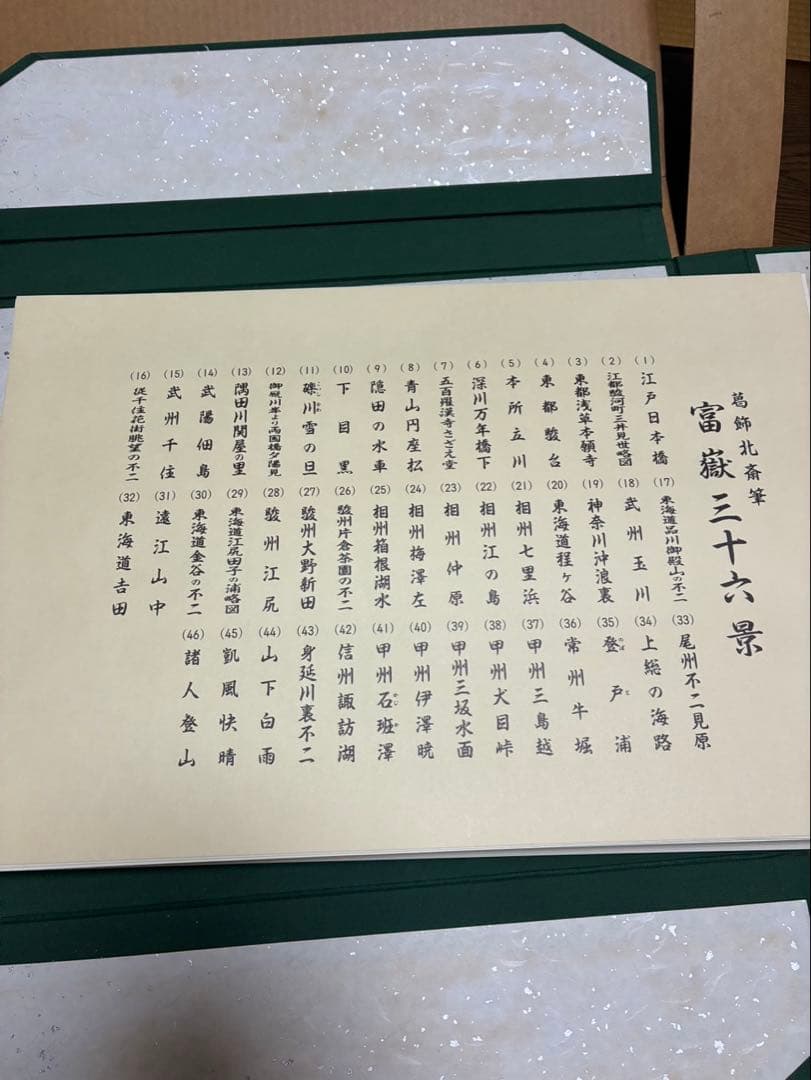 葛飾北斎筆
富嶽三十六景
(1) 江戸日本橋
(2) 江都駿河町三井見世略図
(3) 東都浅草本願寺
(4) 東都駿台
(5) 本所立川
(6) 深川万年橋下
(7) 五百羅漢寺さざえ堂
(8) 青山円座松
(9) 隠田の水車
(10) 下目黒
(11) 礫川雪の旦
(12) 御厩川岸より両国橋夕陽見
(13) 隅田川関屋の里
(14) 武陽佃島
(15) 武州千住
(16) 従千住花街眺望の不二
(17) 東海道品川御殿山の不二
(18) 武州玉川
(19) 神奈川沖浪裏
(20) 東海道程ヶ谷
(21) 相州七里浜
(22) 相州江の島
(23) 相州仲原
(24) 相州梅澤左
(25) 相州箱根湖水
(26) 駿州片倉茶園の不二
(27) 駿州大野新田
(28) 駿州江尻
(29) 東海道江尻田子の浦略図
(30) 東海道金谷の不二
(31) 遠江山中
(32) 東海道吉田
(33) 尾州不二見原
(34) 上総の海路
(35) 登戸浦
(36) 常州牛堀
(37) 甲州三島越
(38) 甲州犬目峠
(39) 甲州三坂水面
(40) 甲州伊澤暁
(41) 甲州石班澤
(42) 信州諏訪湖
(43) 身延川裏不二
(44) 山下白雨
(45) 凱風快晴
(46) 諸人登山